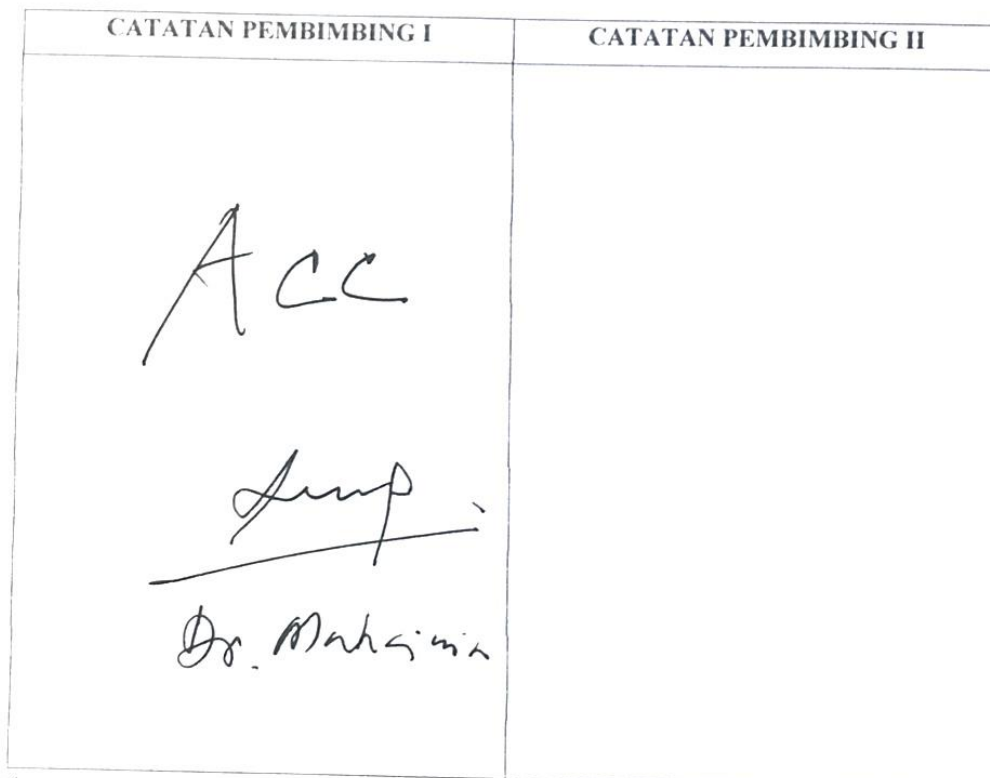 CATATAN PEMBIMBING I
CATATAN PEMBIMBING II
ACC
Dr.